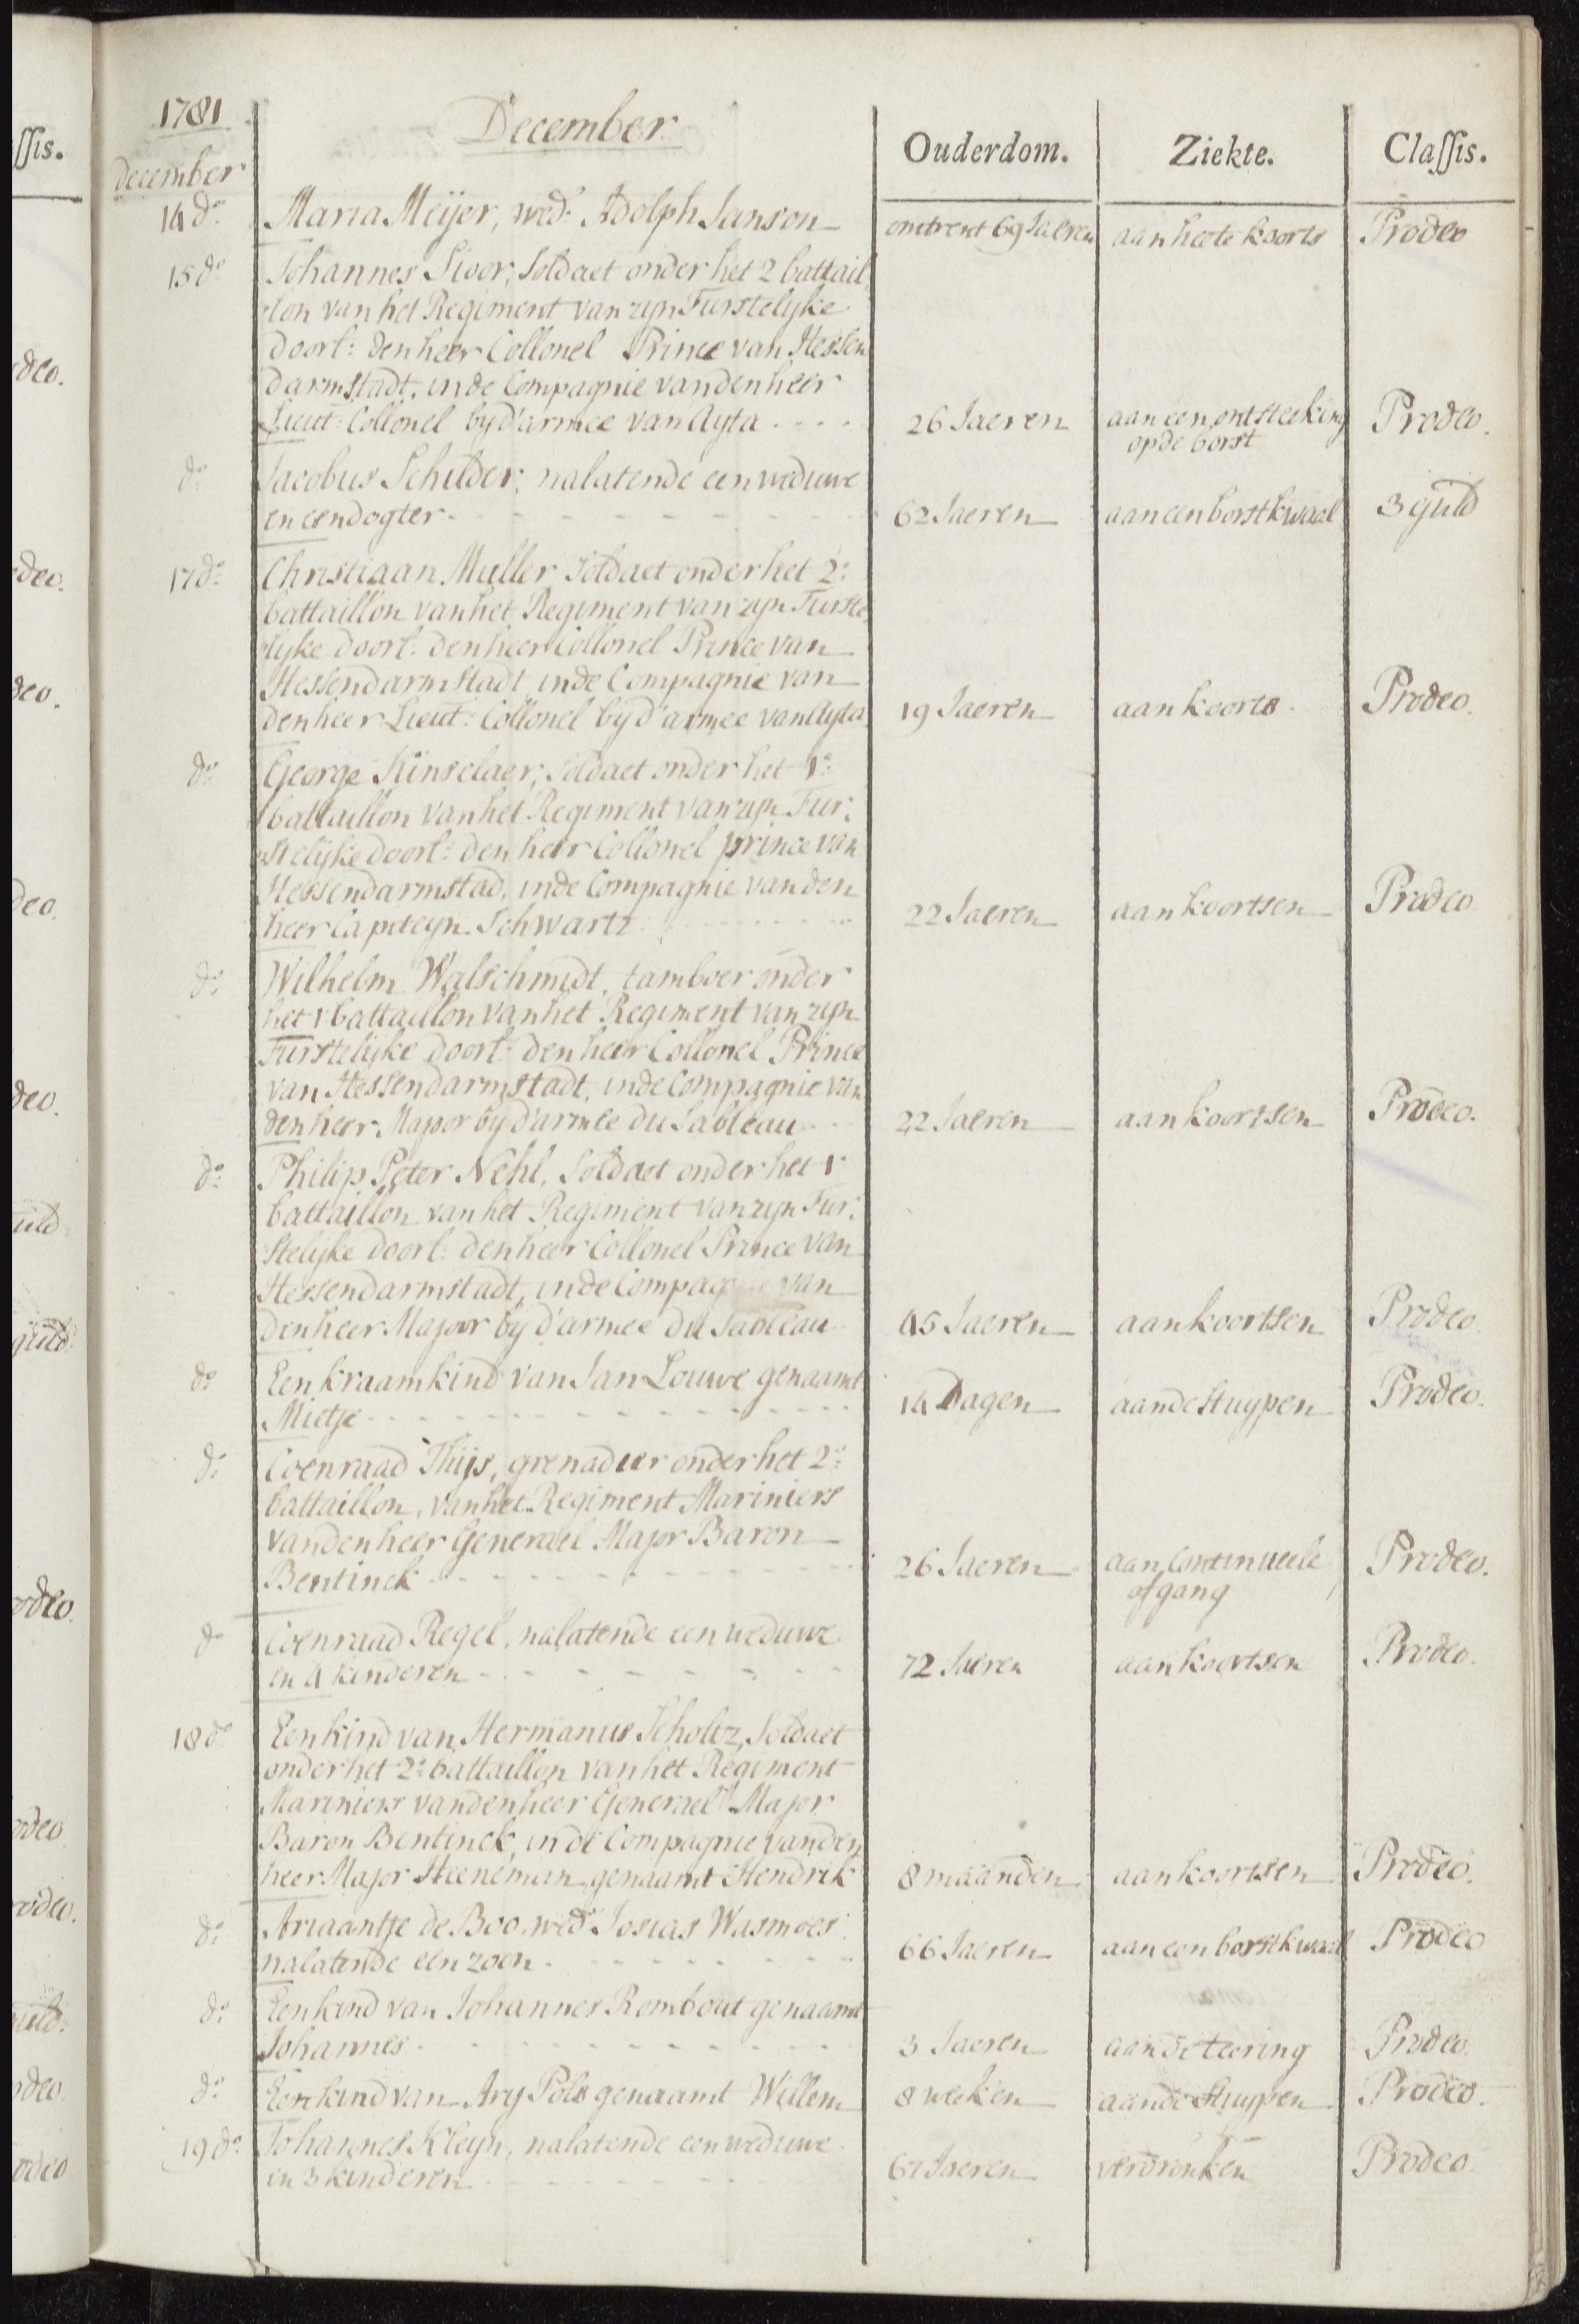 1781
December
Ouderdom. Ziekte. Classis.
december
14 do. Maria Meijer, wed: Adolph Janson omtrent 69 Jaeren aan heete koorts Prodeo
15 do Johannes Sioor, Soldaet onder het 2 battail
lon van het Regiment van zyn Furstelyke
doorl: den heer Collonel Prince van Hessen
darmstadt, in de Compagnie van den heer
Lieut: Collonel by d'armee van Ayta .... 26 Jaeren aan een ontsteeking Prodeo.
op de borst
do Jacobus Schilder, nalatende een weduwe
en een dogter 62 Jaeren aan een borstkwaal 3 guld
17 do Christiaan Muller Soldaet onder het 2:
battaillon van het Regiment van zyn Furste
lyke doorl: den heer Collonel Prince van
Hessendarmstadt in de Compagnie van
den heer Lieut: Collonel by d'armee van Ayta 19 Jaeren aan koorts Prodeo.
do George Kinselaer, soldaet onder het 1:
battaillon van het Regiment van zyn Fur:
stelijke doorl: den heer Collonel prince van
Hessendarmstad, in de Compagnie van den
heer Capiteyn Schwartz 22 Jaeren aan koortsen Prodeo
do Wilhelm Walschmidt, tamboer onder
het 1 battaillon van het Regiment van zyn
Furstelijke doorl: den heer Collonel Prince
van Hessendarmstadt, in de Compagnie van
den heer Major by d'armee du Sableau 22 Jaeren aan koortsen Prodeo.
do Philip Peter Nehl, Soldaet onder het 1
battaillon van het Regiment van zyn Fur:
stelyke doorl: den heer Collonel Prince van
Hessendarmstadt, in de Compagnie van
den heer Major by d'armee du Sableau 45 Jaeren aan koortsen Prodeo
do Een kraamkind van Jan Louwe genaamt
Mietje 14 Dagen aan de stuypen Prodeo.
do Coenraad Thijs, grenadier onder het 2:
battaillon, van het Regiment Mariniers
van den heer Generael Major Baron
Bentinck 26 Jaeren aan Continueele Prodeo.
afgang
do Coenraad Regel, nalatende een weduwe
en 4 kinderen 72 Jaeren aan koortsen Prodeo.
18 do Een kind van Hermanus Scholtz, Soldaet
onder het 2: battaillon van het Regiment
Mariniers van den heer Generael Major
Baron Bentinck, in de Compagnie van den
heer Major Steeneman genaamt Hendrik 8 maanden aan koortsen Prodeo.
do Ariaantje de Boo, wed Josias Wasmoes
nalatende een zoen 66 Jaeren aan een borstkwaal Prodeo
do Een kind van Johannes Rombout genaamt
Johannes 3 Jaeren aan de teering Prodeo
do Een kind van Ary Pols genaamt Willem 8 weeken aan de stuypen Prodeo.
19 do Johannes Kleyn, nalatende een weduwe
en 3 kinderen 67 Jaeren verdronken Prodeo